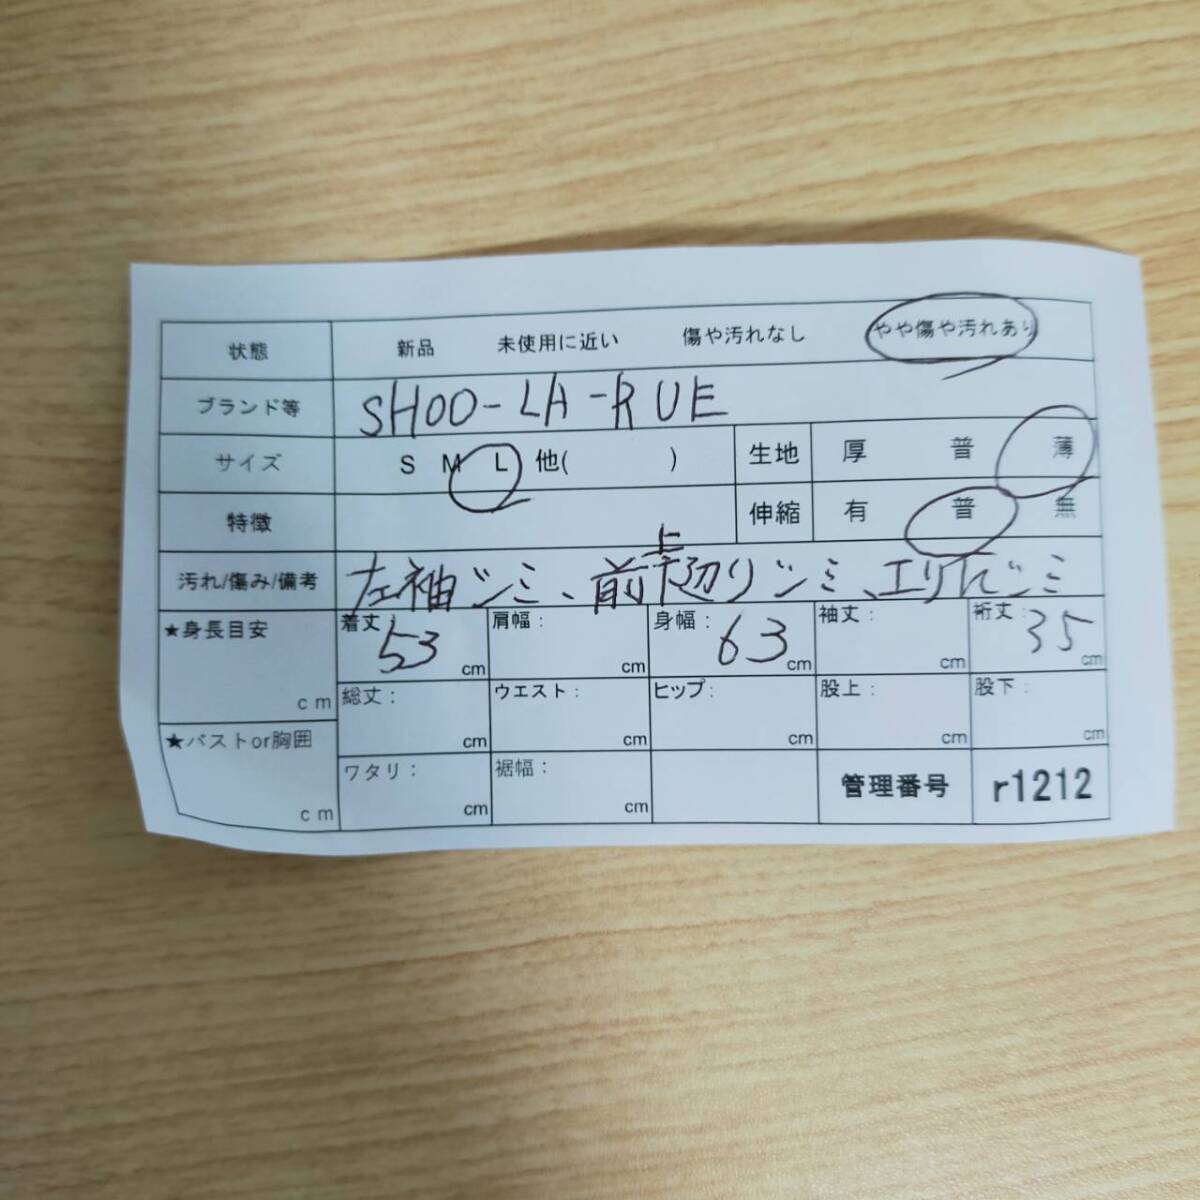 状態 新品 未使用に近い 傷や汚れなし やや傷や汚れあり
ブランド等 SHOO-LA-RUE
サイズ S M L 他( ) 生地 厚 普 薄
特徴 伸縮 有 普 無
汚れ/傷み/備考 左袖ジミ、前上辺りジミ、エリ
★身長目安 cm 着丈 53 cm 肩幅: cm 身幅: 63 cm 袖丈: cm 裄丈: 35 cm
総丈: cm ウエスト: cm ヒップ: cm 股上: cm 股下: cm
★バストor胸囲 cm ワタリ: cm 裾幅: cm 管理番号 r1212